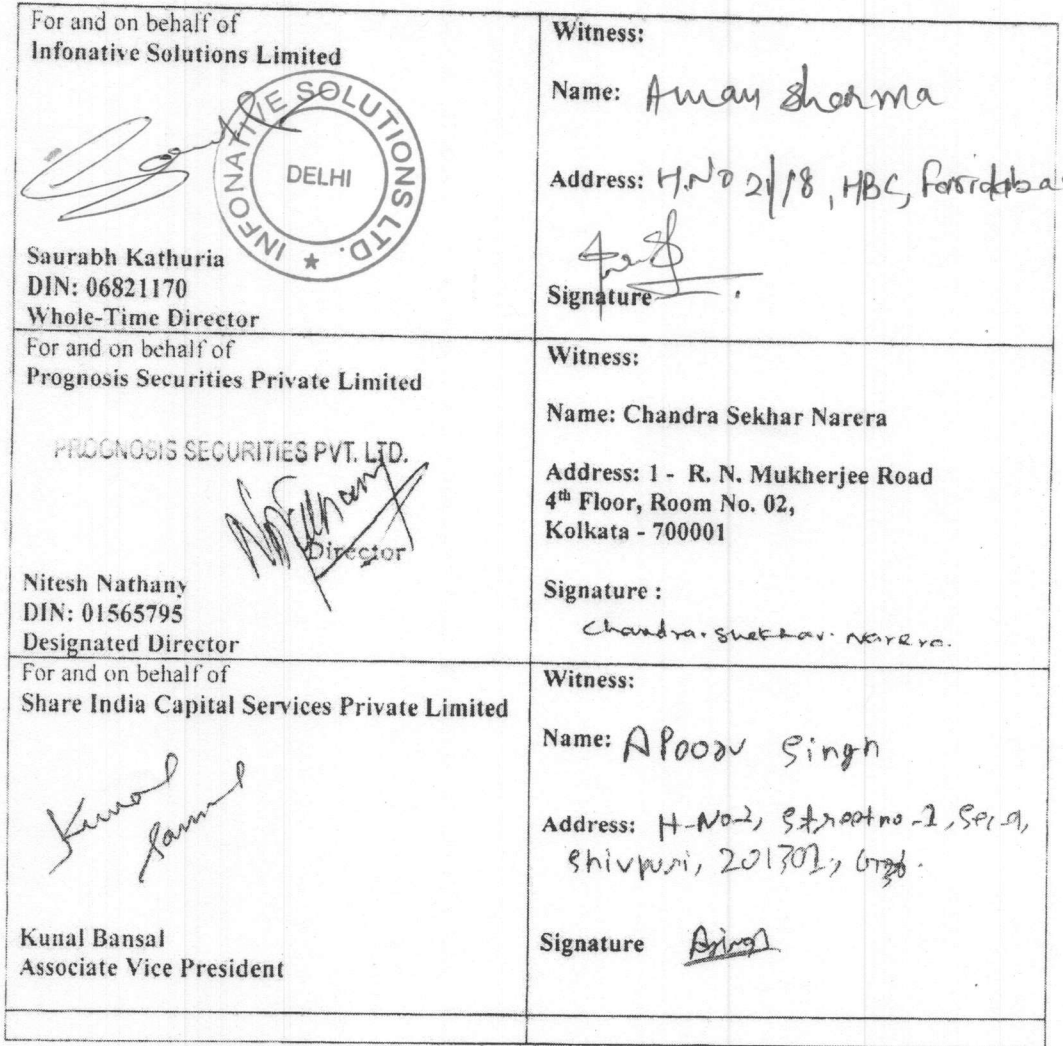 For and on behalf of
Infonative Solutions Limited
INFONATIVE SOLUTIONS LTD.
DELHI
Saurabh Kathuria
DIN: 06821170
Whole-Time Director
Witness:
Name: Aman Sharma
Address: H.No 21/18, HBC, Faridaba
Signature
For and on behalf of
Prognosis Securities Private Limited
PROGNOSIS SECURITIES PVT. LTD.
Director
Nitesh Nathany
DIN: 01565795
Designated Director
Witness:
Name: Chandra Sekhar Narera
Address: 1 - R. N. Mukherjee Road
4th Floor, Room No. 02,
Kolkata - 700001
Signature :
Chandra Shekhar Narera.
For and on behalf of
Share India Capital Services Private Limited
Kunal
Kunal Bansal
Associate Vice President
Witness:
Name: Apoorv Singh
Address: H-No-2, Street no-1, Sec-9,
Shivpuri, 201301,
Signature